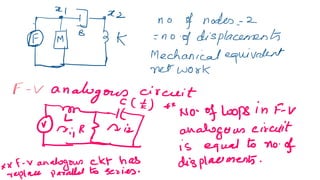 x1 x2
F M B K
no of nodes = 2
= no of displacements
Mechanical equivalent
net work
F-V analogous circuit
C (1/K)
V L i1 R i2
** No. of Loops in F-V
analogous circuit
is equal to no. of
displacements.
** F-V analogous ckt has
replace parallel to series.